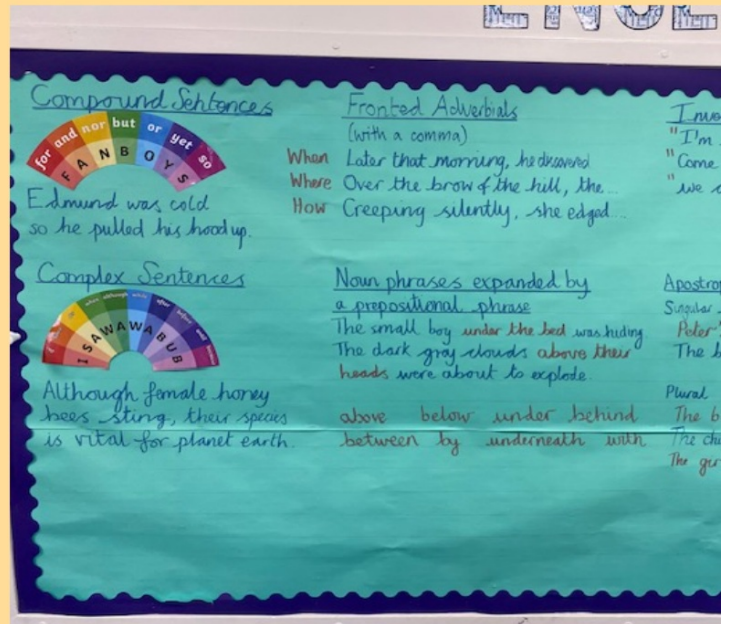 Compound Sentences
for and nor but or yet so
F A N B O Y S
Edmund was cold
so he pulled his hood up.
Complex Sentences
although while after before
I S A W A W A B U B
Although female honey
bees sting, their species
is vital for planet earth.
Fronted Adverbials
(with a comma)
When Later that morning, he discovered
Where Over the brow of the hill, the...
How Creeping silently, she edged...
Noun phrases expanded by
a prepositional phrase
The small boy under the bed was hiding.
The dark gray clouds above their
heads were about to explode.
above below under behind
between by underneath with
"I'm
"Come
"we
Singular
Peter'
The b
Plural
The b
The chi
The gir